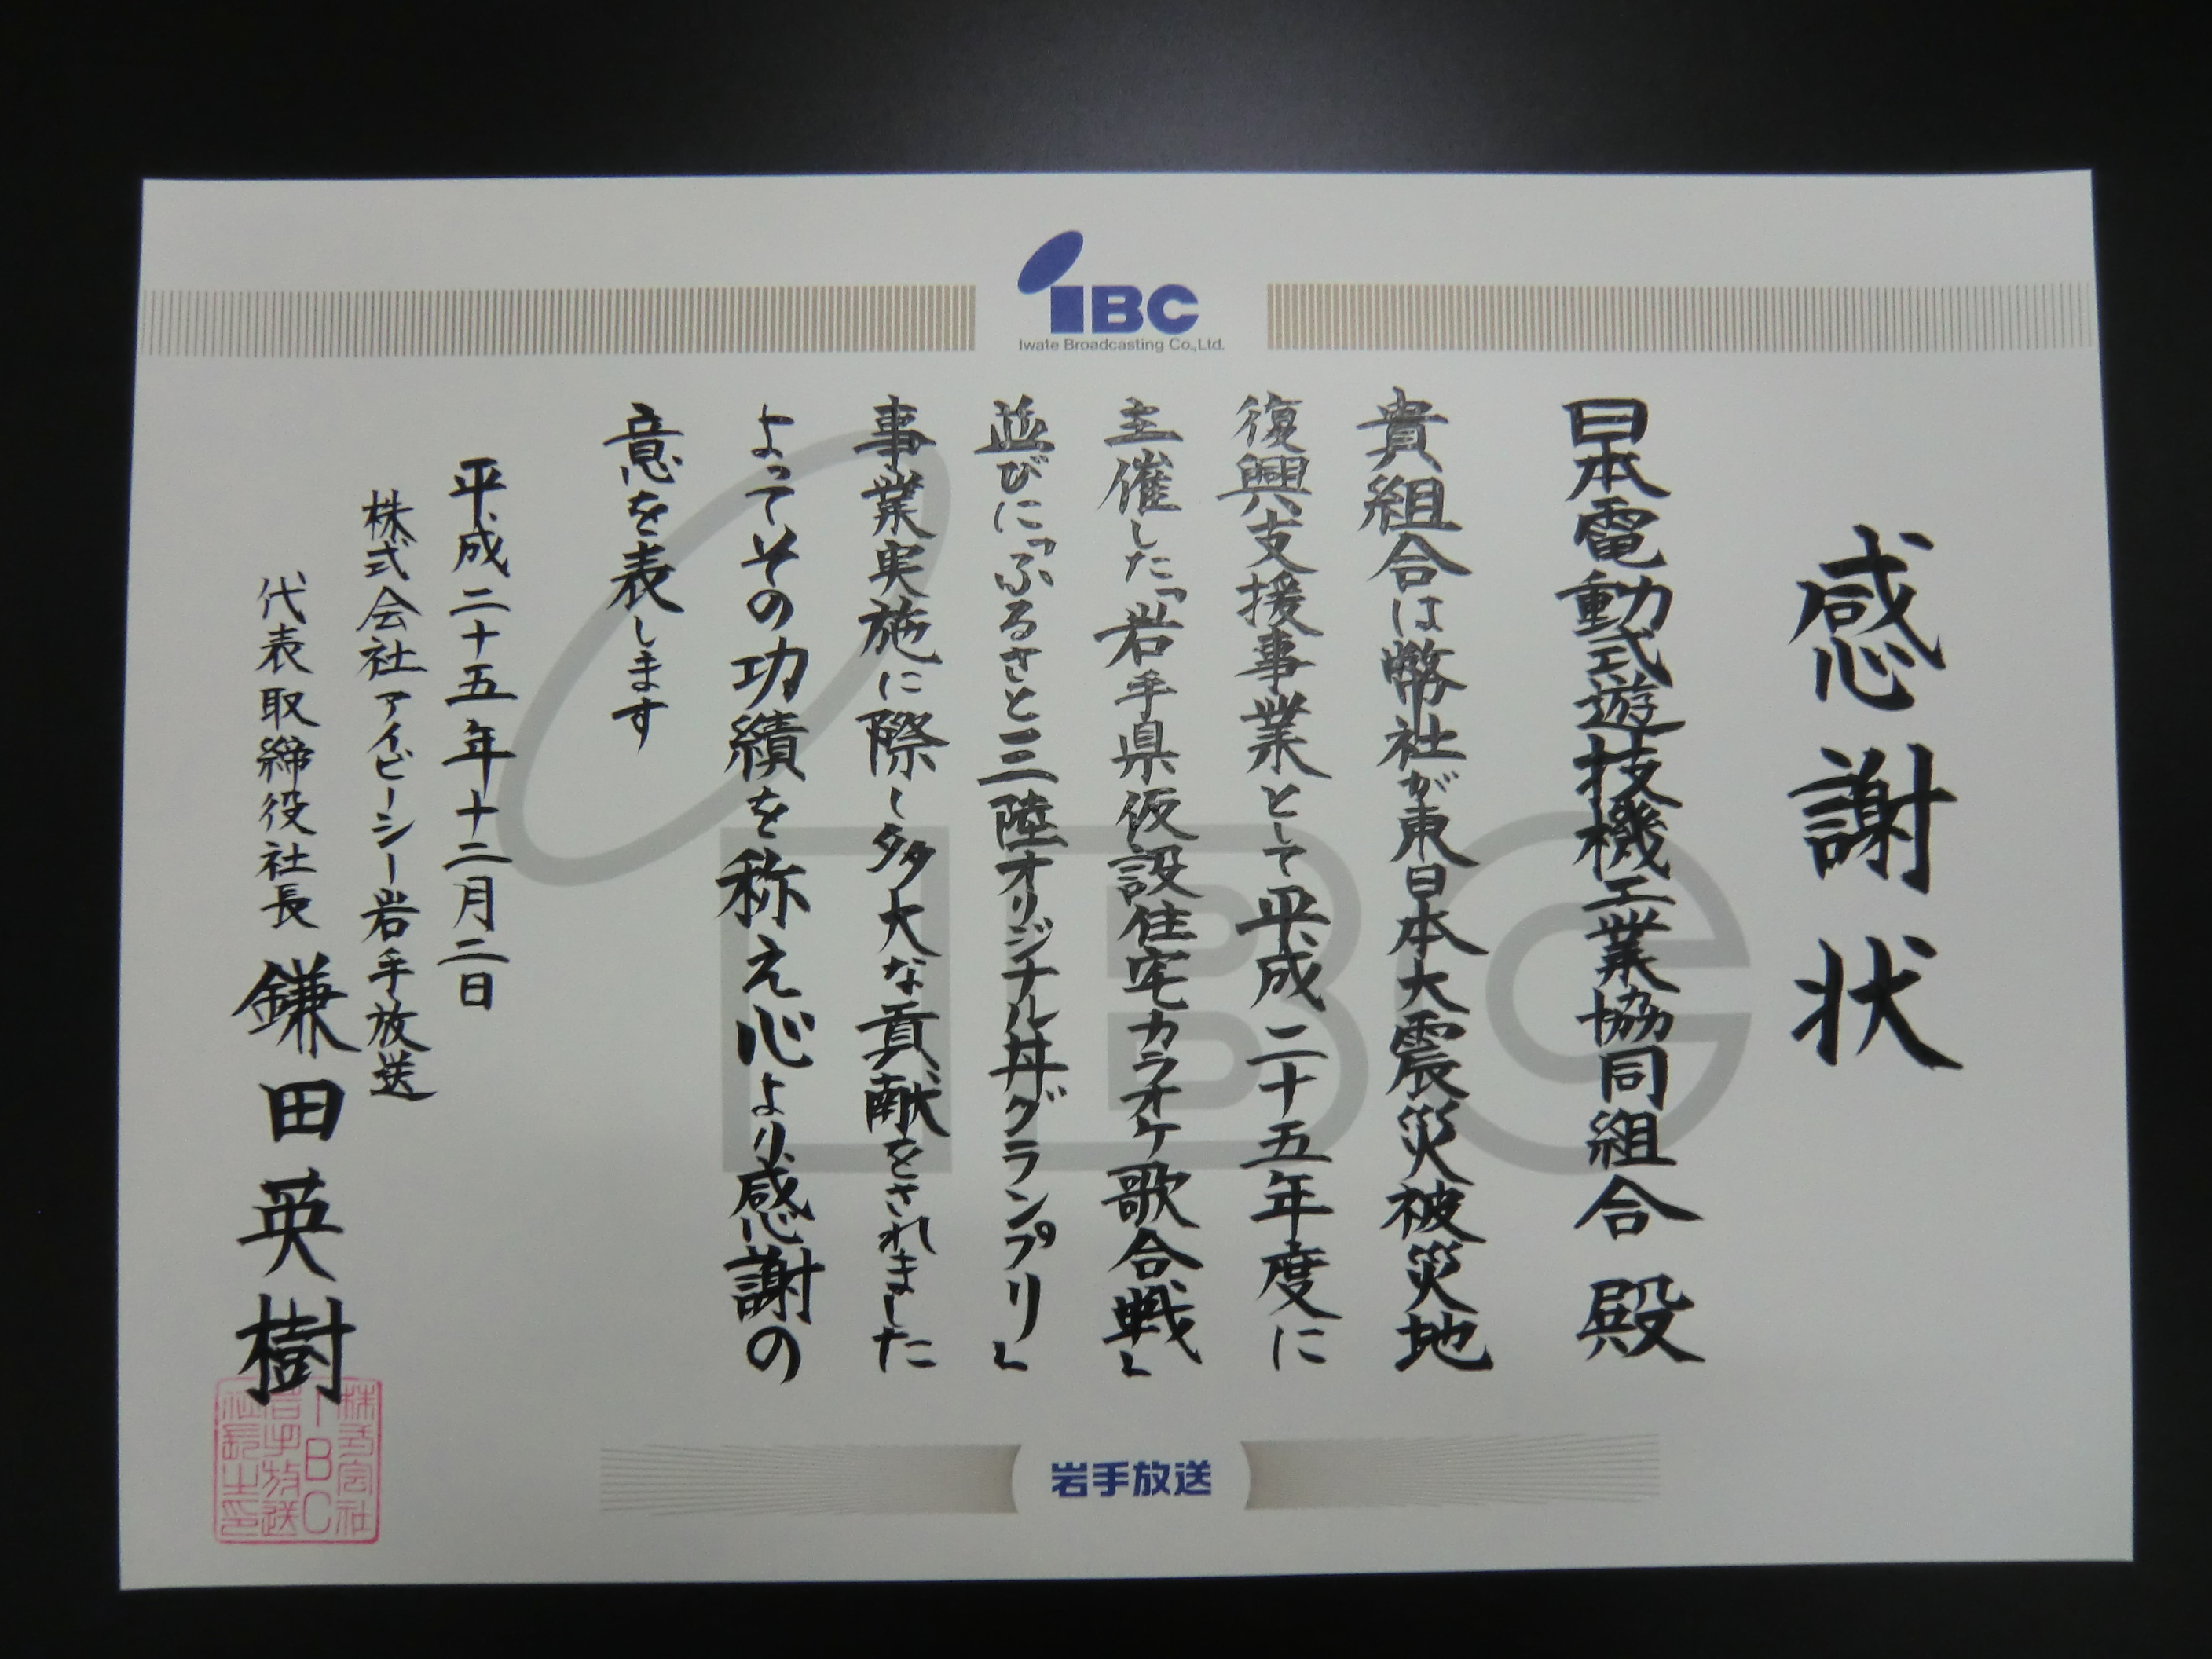 IBC
Iwate Broadcasting Co.,Ltd.
感謝状
日本電動式遊技機工業協同組合 殿
貴組合は幣社が東日本大震災被災地
復興支援事業として平成二十五年度に
主催した「岩手県仮設住宅カラオケ歌合戦」
並びに「ふるさと三陸オリジナル丼グランプリ」
事業実施に際し多大な貢献をされました
よってその功績を称え心より感謝の
意を表します
平成二十五年十二月二日
株式会社アイビーシー岩手放送
代表取締役社長 鎌田英樹
株式会社
IBC
岩手放送
社長之印
岩手放送
IBC